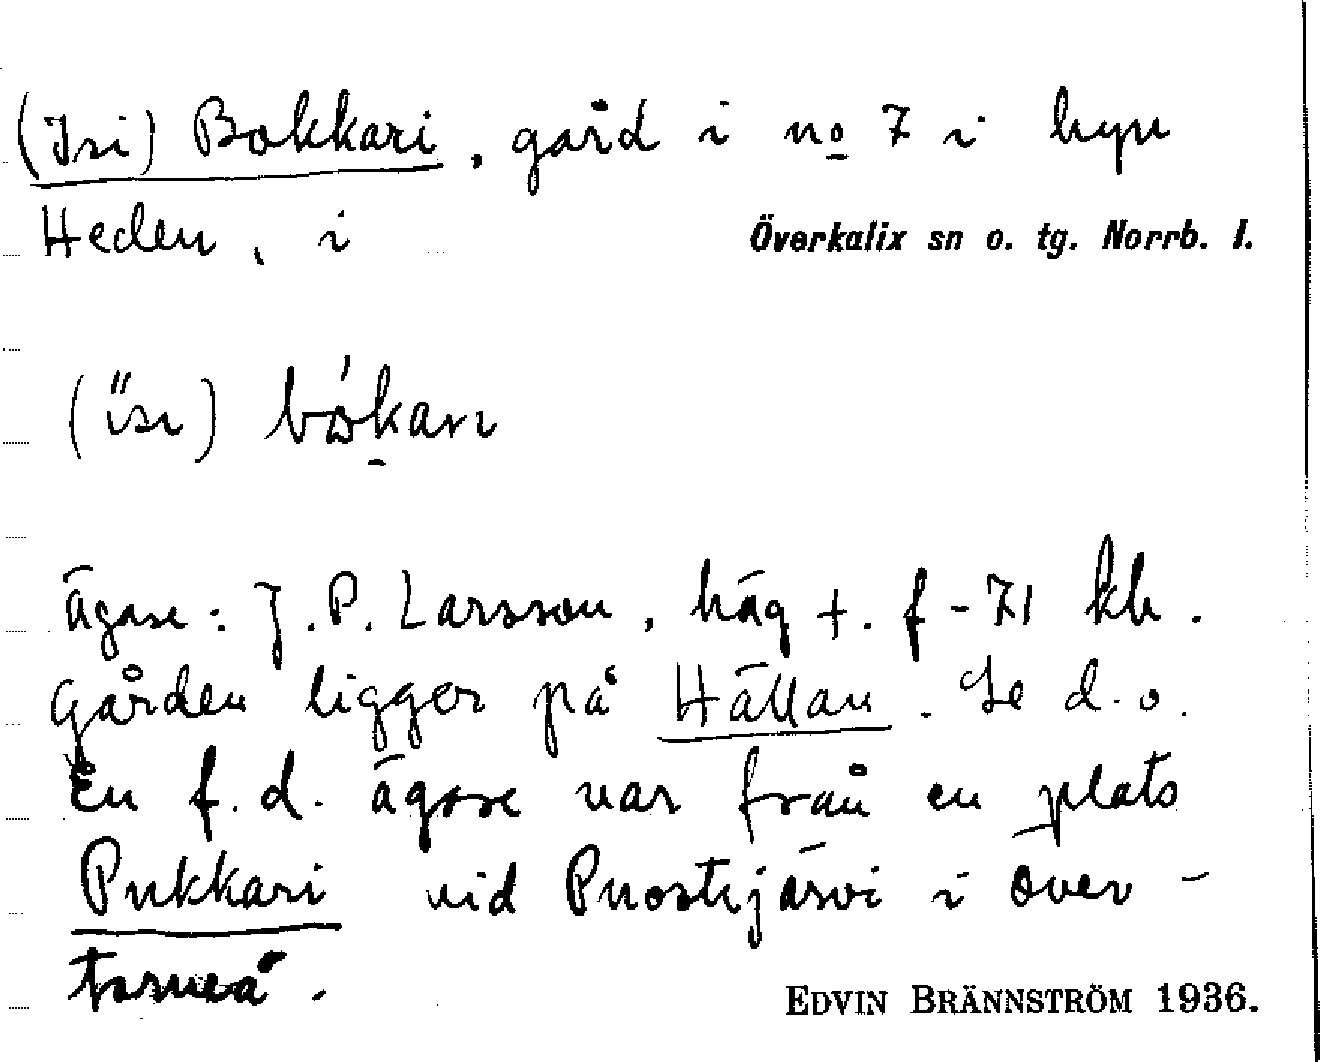 (Isi) Bokkari, gård i no 7 i byn
Heden, i Överkalix sn o. tg. Norrb. l.
ägare: J. P. Larsson, häg +. f - 71 kh.
Gården ligger på Hällan. Se d. o.
En f. d. ägare var från en plats
Pukkari vid Puostijärvi i Över-
torneå.
EDVIN BRÄNNSTRÖM 1936.